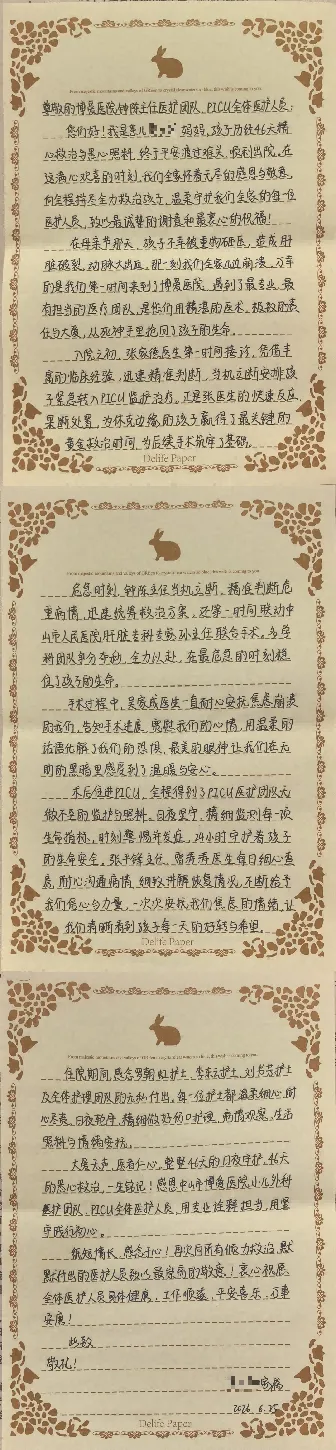 尊敬的博爱医院钟陈主任医护团队、PICU全体医护人员：
您们好！我是患儿 妈妈，孩子历经46天精
心救治与悉心照料，终于平安渡过难关，顺利出院。在
这满心欢喜的时刻，我们全家怀着无尽的感恩与敬意，
向全程拼尽全力救治孩子、温柔守护我们全家的每一位
医护人员，致以最诚挚的谢意和最衷心的祝福！
在母亲节那天，孩子不幸被重物砸压，造成肝
脏破裂，动脉大出血，那一刻我们全家几近崩溃，万幸
的是我们第一时间来到了博爱医院，遇到了最专业、最
有担当的医疗团队，是您们用精湛的医术、极致的责
任与大爱，从死神手里抢回了孩子的生命。
入院之初，张家德医生第一时间接诊，凭借丰
富的临床经验，迅速精准判断，当机立断安排孩
子紧急转入PICU监护治疗。正是张医生的快速反应、
果断处置，为怀克边缘的孩子赢得了最关键的
黄金救治时间，为后续手术筑牢了基础。
Delife Paper
危急时刻，钟陈主任当机立断，精准判断危
重病情，迅速统筹救治方案，还第一时间联动中
山市人民医院肝脏专科专家孙主任联合手术。多学
科团队争分夺秒，全力以赴，在最危急的时刻稳
住了孩子的生命。
手术过程中，吴家成医生一直耐心安抚焦急崩溃
的我们，告知手术进展，宽慰我们的心情，用温柔的
话语化解了我们的恐惧，最美的眼神让我们在无
助的黑暗里感受到了温暖与安心。
术后住进PICU，全程得到了PICU医护团队无
微不至的监护与照料。日夜坚守，精细监测每一项
生命指标，时刻警惕并发症，24小时守护着孩子
的生命安全。张主任、 医生每日细心查
房，耐心沟通病情，细致讲解恢复情况，不断给予
我们信心与力量，一次次安抚我们焦虑的情绪，让
我们清晰看到孩子每一天的好转与希望。
Delife Paper
住院期间，感恩罗朝虹护士、李东云护士、刘书芬护士
及全体护理团队的无私付出，每一位护士都温柔细心、耐
心尽责，日夜轮守，精细做好伤口护理、病情观察、生活
照料与情绪安抚。
大爱无声，医者仁心，整整46天的日夜守护，46天
的悉心救治，一生铭记！感恩中山市博爱医院小儿外科
医护团队、PICU全体医护人员，用专业诠释担当，用坚
守践行初心。
纸短情长，感念于心！再次向所有倾力救治、默
默付出的医护人员致以最崇高的敬意！衷心祝愿
全体医护人员身体健康、工作顺遂、平安喜乐、万事
安康！
此致
敬礼！
家属
2026.6.25
Delife Paper